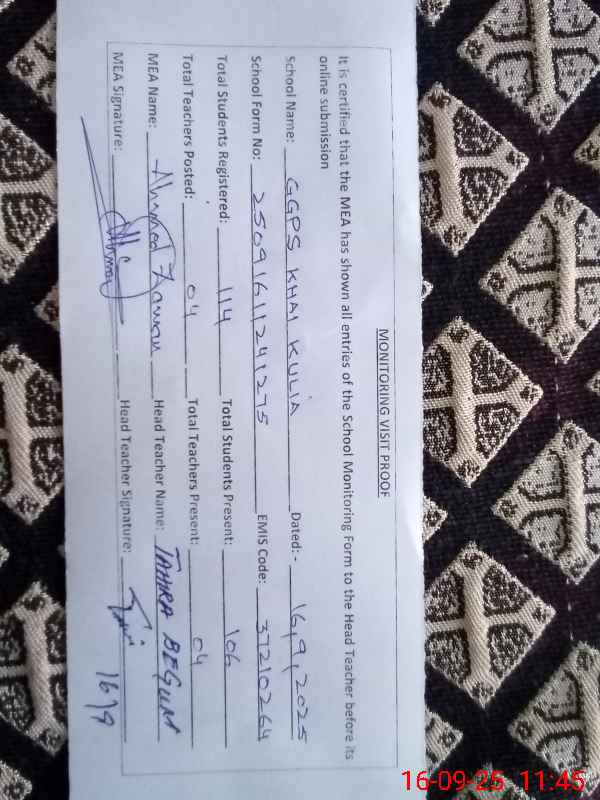 MONITORING VISIT PROOF
It is certified that the MEA has shown all entries of the School Monitoring Form to the Head Teacher before its
online submission
School Name: GGPS KHAI KULIA Dated:- 16,9,2025
School Form No: 2509161124 1275 EMIS Code: 37210264
Total Students Registered: 114 Total Students Present: 106
Total Teachers Posted: 04 Total Teachers Present: 04
MEA Name: Ahmed Anwar Head Teacher Name: TAHIRA BEGUM
MEA Signature: Head Teacher Signature: 16/9
16-09-25 11:45